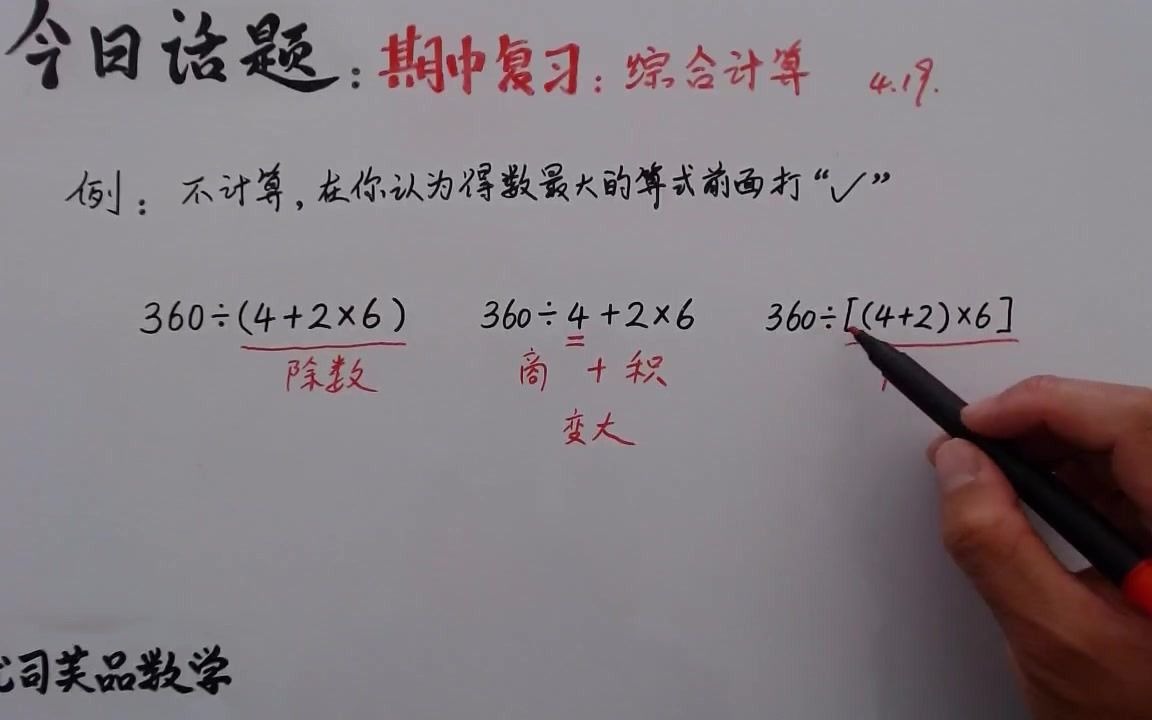 今日话题：期中复习：综合计算 4.19.
例：不计算，在你认为得数最大的算式前面打“✓”
360÷(4+2×6) 360÷4+2×6 360÷[(4+2)×6]
除数 商 + 积
变大
司芙品数学